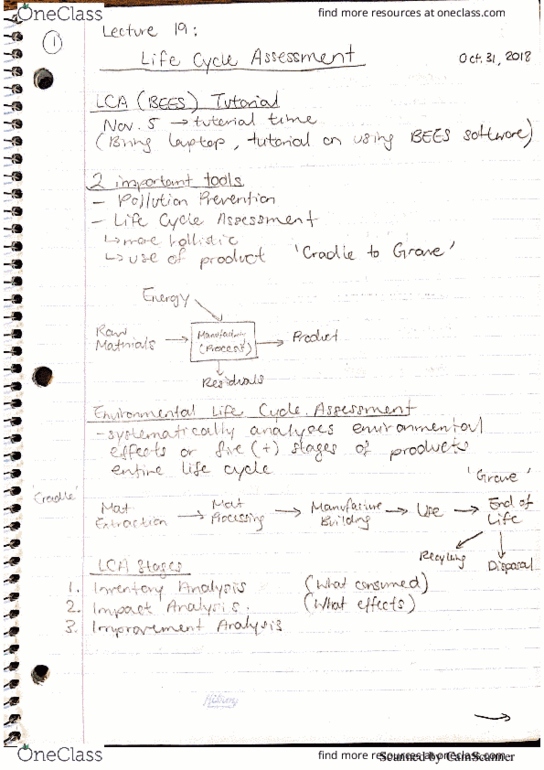 OneClass
find more resources at oneclass.com
1
Lecture 19:
Life Cycle Assessment
Oct. 31, 2018
LCA (BEES) Tutorial
Nov. 5 → tutorial time
(Bring laptop, tutorial on using BEES software)
2 important tools
- Pollution Prevention
- Life Cycle Assessment
↳ more hollistic
↳ use of product 'Cradle to Grave'
Energy
Raw Materials → Manufacturing (Process) → Product
Residuals
Environmental Life Cycle Assessment
- systematically analyses environmental
effects or five (+) stages of products
entire life cycle
'Grave'
'Cradle'
Mat Extraction → Mat Processing → Manufacture Building → Use → End of Life
Recycling
Disposal
LCA Stages
1. Inventory Analysis (What consumed)
2. Impact Analysis. (What effects)
3. Improvement Analysis
Hilroy
→
OneClass
find more resources at oneclass.com
Scanned by CamScanner